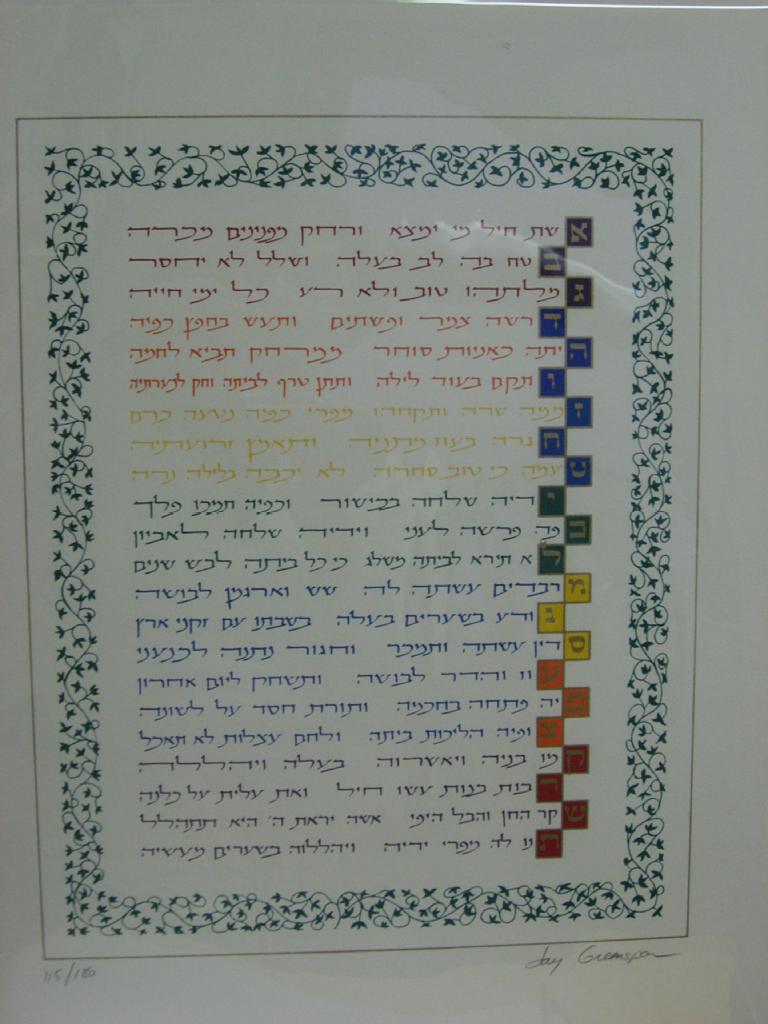 אשת חיל מי ימצא ורחק מפנינים מכרה
בטח בה לב בעלה ושלל לא יחסר
גמלתהו טוב ולא רע כל ימי חייה
דרשה צמר ופשתים ותעש בחפץ כפיה
היתה כאניות סוחר ממרחק תביא לחמה
ותקם בעוד לילה ותתן טרף לביתה וחק לנערותיה
זממה שדה ותקחהו מפרי כפיה נטעה כרם
חגרה בעוז מתניה ותאמץ זרועתיה
טעמה כי טוב סחרה לא יכבה בלילה נרה
ידיה שלחה בכישור וכפיה תמכו פלך
כפה פרשה לעני וידיה שלחה לאביון
לא תירא לביתה משלג כי כל ביתה לבש שנים
מרבדים עשתה לה שש וארגמן לבושה
נודע בשערים בעלה בשבתו עם זקני ארץ
סדין עשתה ותמכר וחגור נתנה לכנעני
עוז והדר לבושה ותשחק ליום אחרון
פיה פתחה בחכמה ותורת חסד על לשונה
צופיה הליכות ביתה ולחם עצלות לא תאכל
קמו בניה ויאשרוה בעלה ויהללה
רבות בנות עשו חיל ואת עלית על כלנה
שקר החן והבל היפי אשה יראת ה׳ היא תתהלל
תנו לה מפרי ידיה ויהללוה בשערים מעשיה
115/180 Jay Greenspan